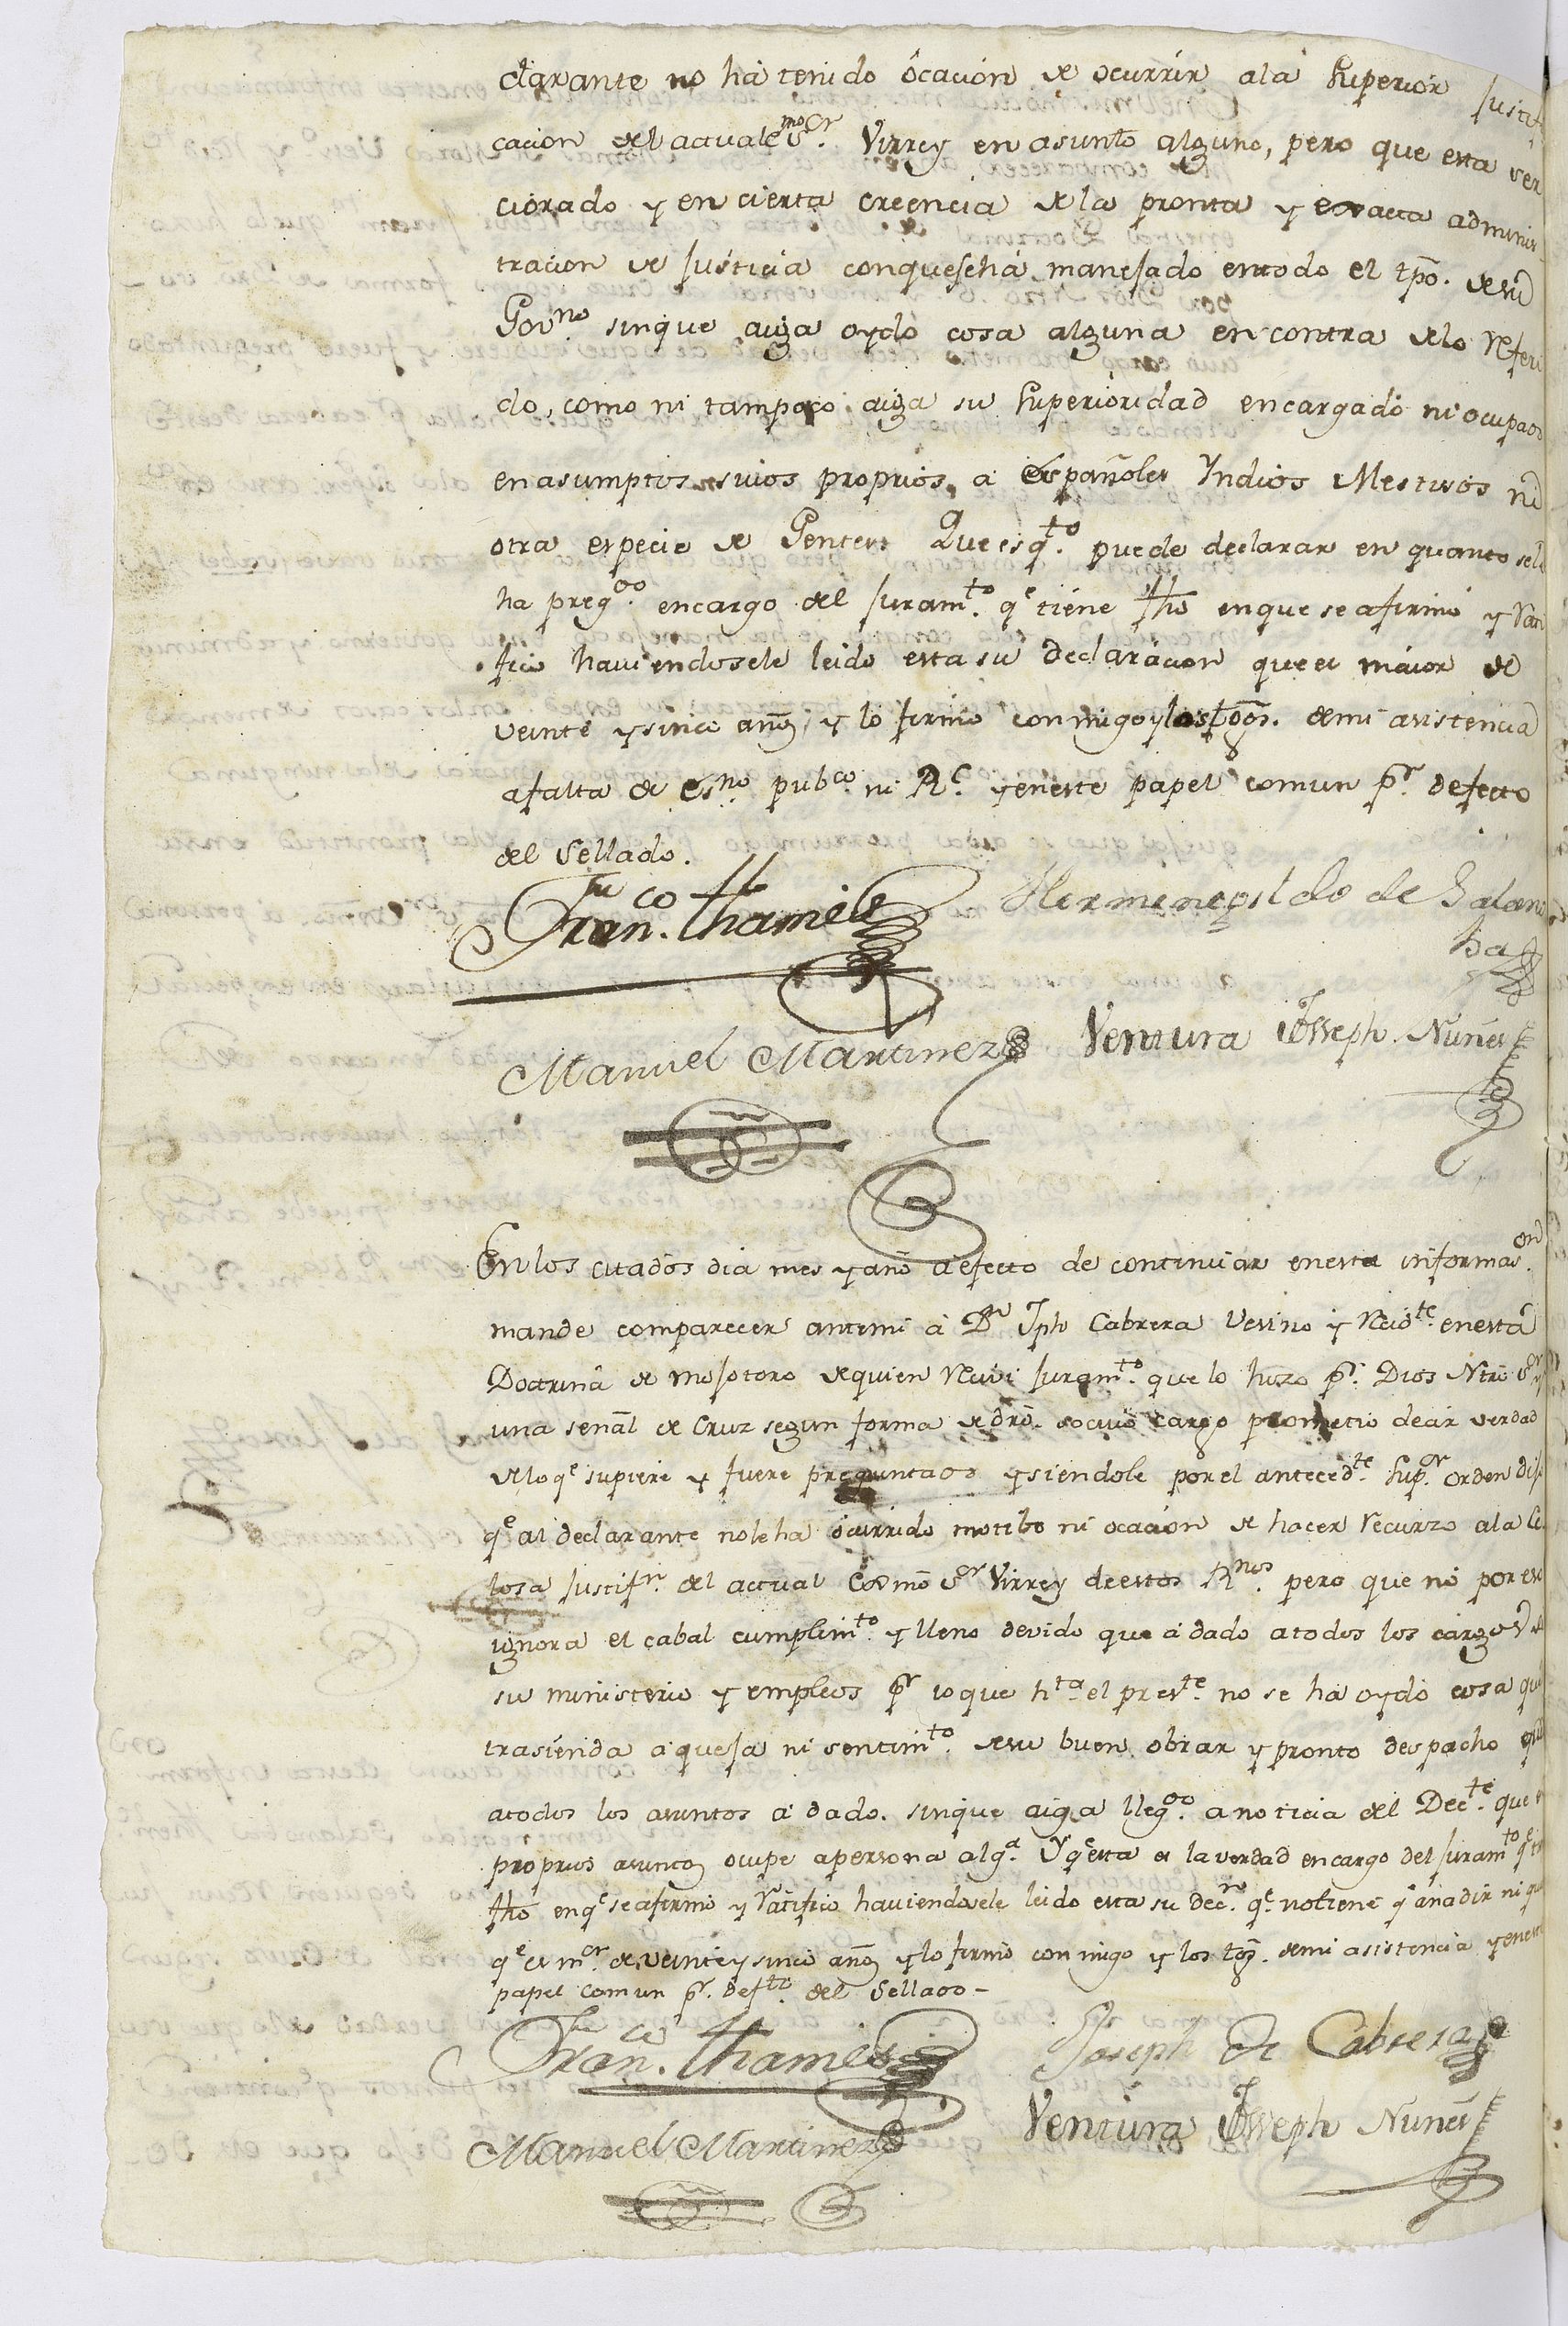 clarante no ha tenido ocacion de ocurrir a la Superior Justifi
cacion del actual exmo Sr. Virrey en asunto alguno, pero que esta ver
ciorado y en cierta creencia de la pronta y exacta adminis
tracion de Justicia conque se há manejado en todo el tpo. de su
Govno sin que aiga oydo cosa alguna en contra de lo referi
do, como ni tampoco aiga su Superioridad encargado ni ocupado
en asumptos suios proprios, a españoles Yndios Mestisos ni
otra especie de Gentes Que es qto. puede declarar en quanto se le
ha pregdo. en cargo del Juramto. qe tiene fho en que se afirmó y rati
ficó haviendosele leido esta su declaracion que es maior de
veinte y sinco años, y lo firmó conmigo y los tgos. de mi asistencia
a falta de Esno pubco. ni Rl. y en este papel comun pr. defecto
del Sellado.
Franco. Thames Hermenegildo de Salam
ba
Manuel Martinez Ventura Josseph Nuñes
En los citados dia mes y año a efecto de continuar en esta informaon.
mande comparecer ante mi á Dn Jph Cabrera Vesino y Recidte. en esta
Doctrina de Mojotoro de quien recivi juramto. que lo hizo pr. Dios Ntro Sor y
una señal de Cruz segun forma de dro. so cuio cargo prometio decir verdad
de lo qe supiere y fuere preguntado y siendole por el antecedte. Supor. orden dijo
qe al declarante no le ha ocurrido motibo ni ocacion de hacer recurzo a la Ce
losa justifn. del actual Exmo Sor Virrey de estos Rnos. pero que no por eso
ignora el cabal cumplimto. y lleno devido que á dado a todos los cargos de
su ministerio y empleos pr lo que hta. el preste. no se ha oydo cosa que
trasienda a queja ni sentimto. de su buen obrar y pronto despacho que
a todos los asuntos á dado. sin que aiga llegdo. a noticia del Decte. que en
proprios asuntos ocupe a persona alga. Y qe esta es la verdad en cargo del juramto qe tiene
fho en qe se afirmó y ratificó haviendosele leido esta su decn. qe no tiene qe añadir ni qui
qe es mor. de veinte y sinco años y lo firmó conmigo y los tgos. de mi asistencia y en este
papel comun pr. defto. del Sellado -
Franco. Thames Joseph de Cabrera
Manuel Martinez Ventura Josseph Nuñes